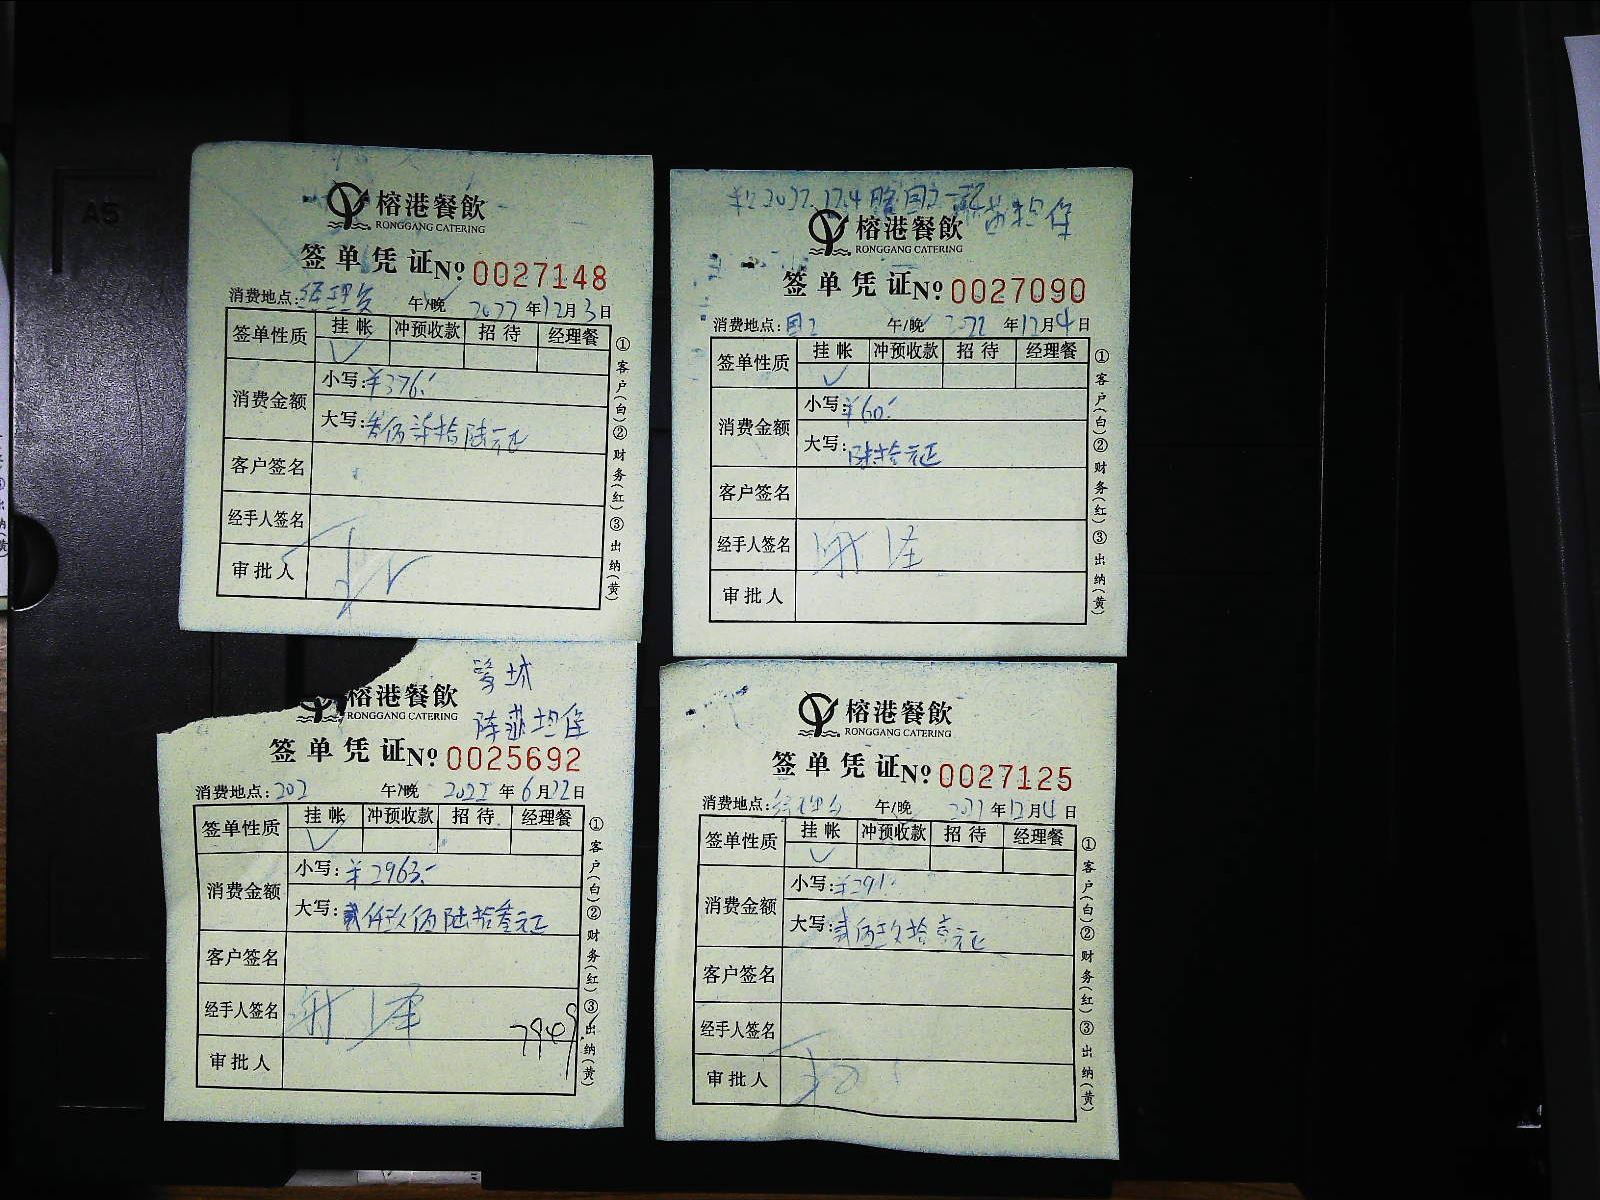 榕港餐飲
RONGGANG CATERING
签单凭证 No 0027148
消费地点: 经理餐 午/晚 2022年12月3日
签单性质 挂帐 冲预收款 招待 经理餐
✓
消费金额 小写: ¥376.-
大写: 叁佰柒拾陆元正
客户签名
经手人签名
审批人
①客户(白)②财务(红)③出纳(黄)
2022.12.4晚国2
担保
榕港餐飲
RONGGANG CATERING
签单凭证 No 0027090
消费地点: 国2 午/晚 2022年12月4日
签单性质 挂帐 冲预收款 招待 经理餐
✓
消费金额 小写: ¥60.-
大写: 陆拾元正
客户签名
经手人签名
审批人
①客户(白)②财务(红)③出纳(黄)
榕港餐飲
RONGGANG CATERING
陈 担保
签单凭证 No 0025692
消费地点: 202 午/晚 2022年6月22日
签单性质 挂帐 冲预收款 招待 经理餐
✓
消费金额 小写: ¥2963.-
大写: 贰仟玖佰陆拾叁元正
客户签名
经手人签名
审批人
①客户(白)②财务(红)③出纳(黄)
榕港餐飲
RONGGANG CATERING
签单凭证 No 0027125
消费地点: 午/晚 2022年12月4日
签单性质 挂帐 冲预收款 招待 经理餐
✓
消费金额 小写: ¥291.-
大写: 贰佰玖拾壹元正
客户签名
经手人签名
审批人
①客户(白)②财务(红)③出纳(黄)
A5